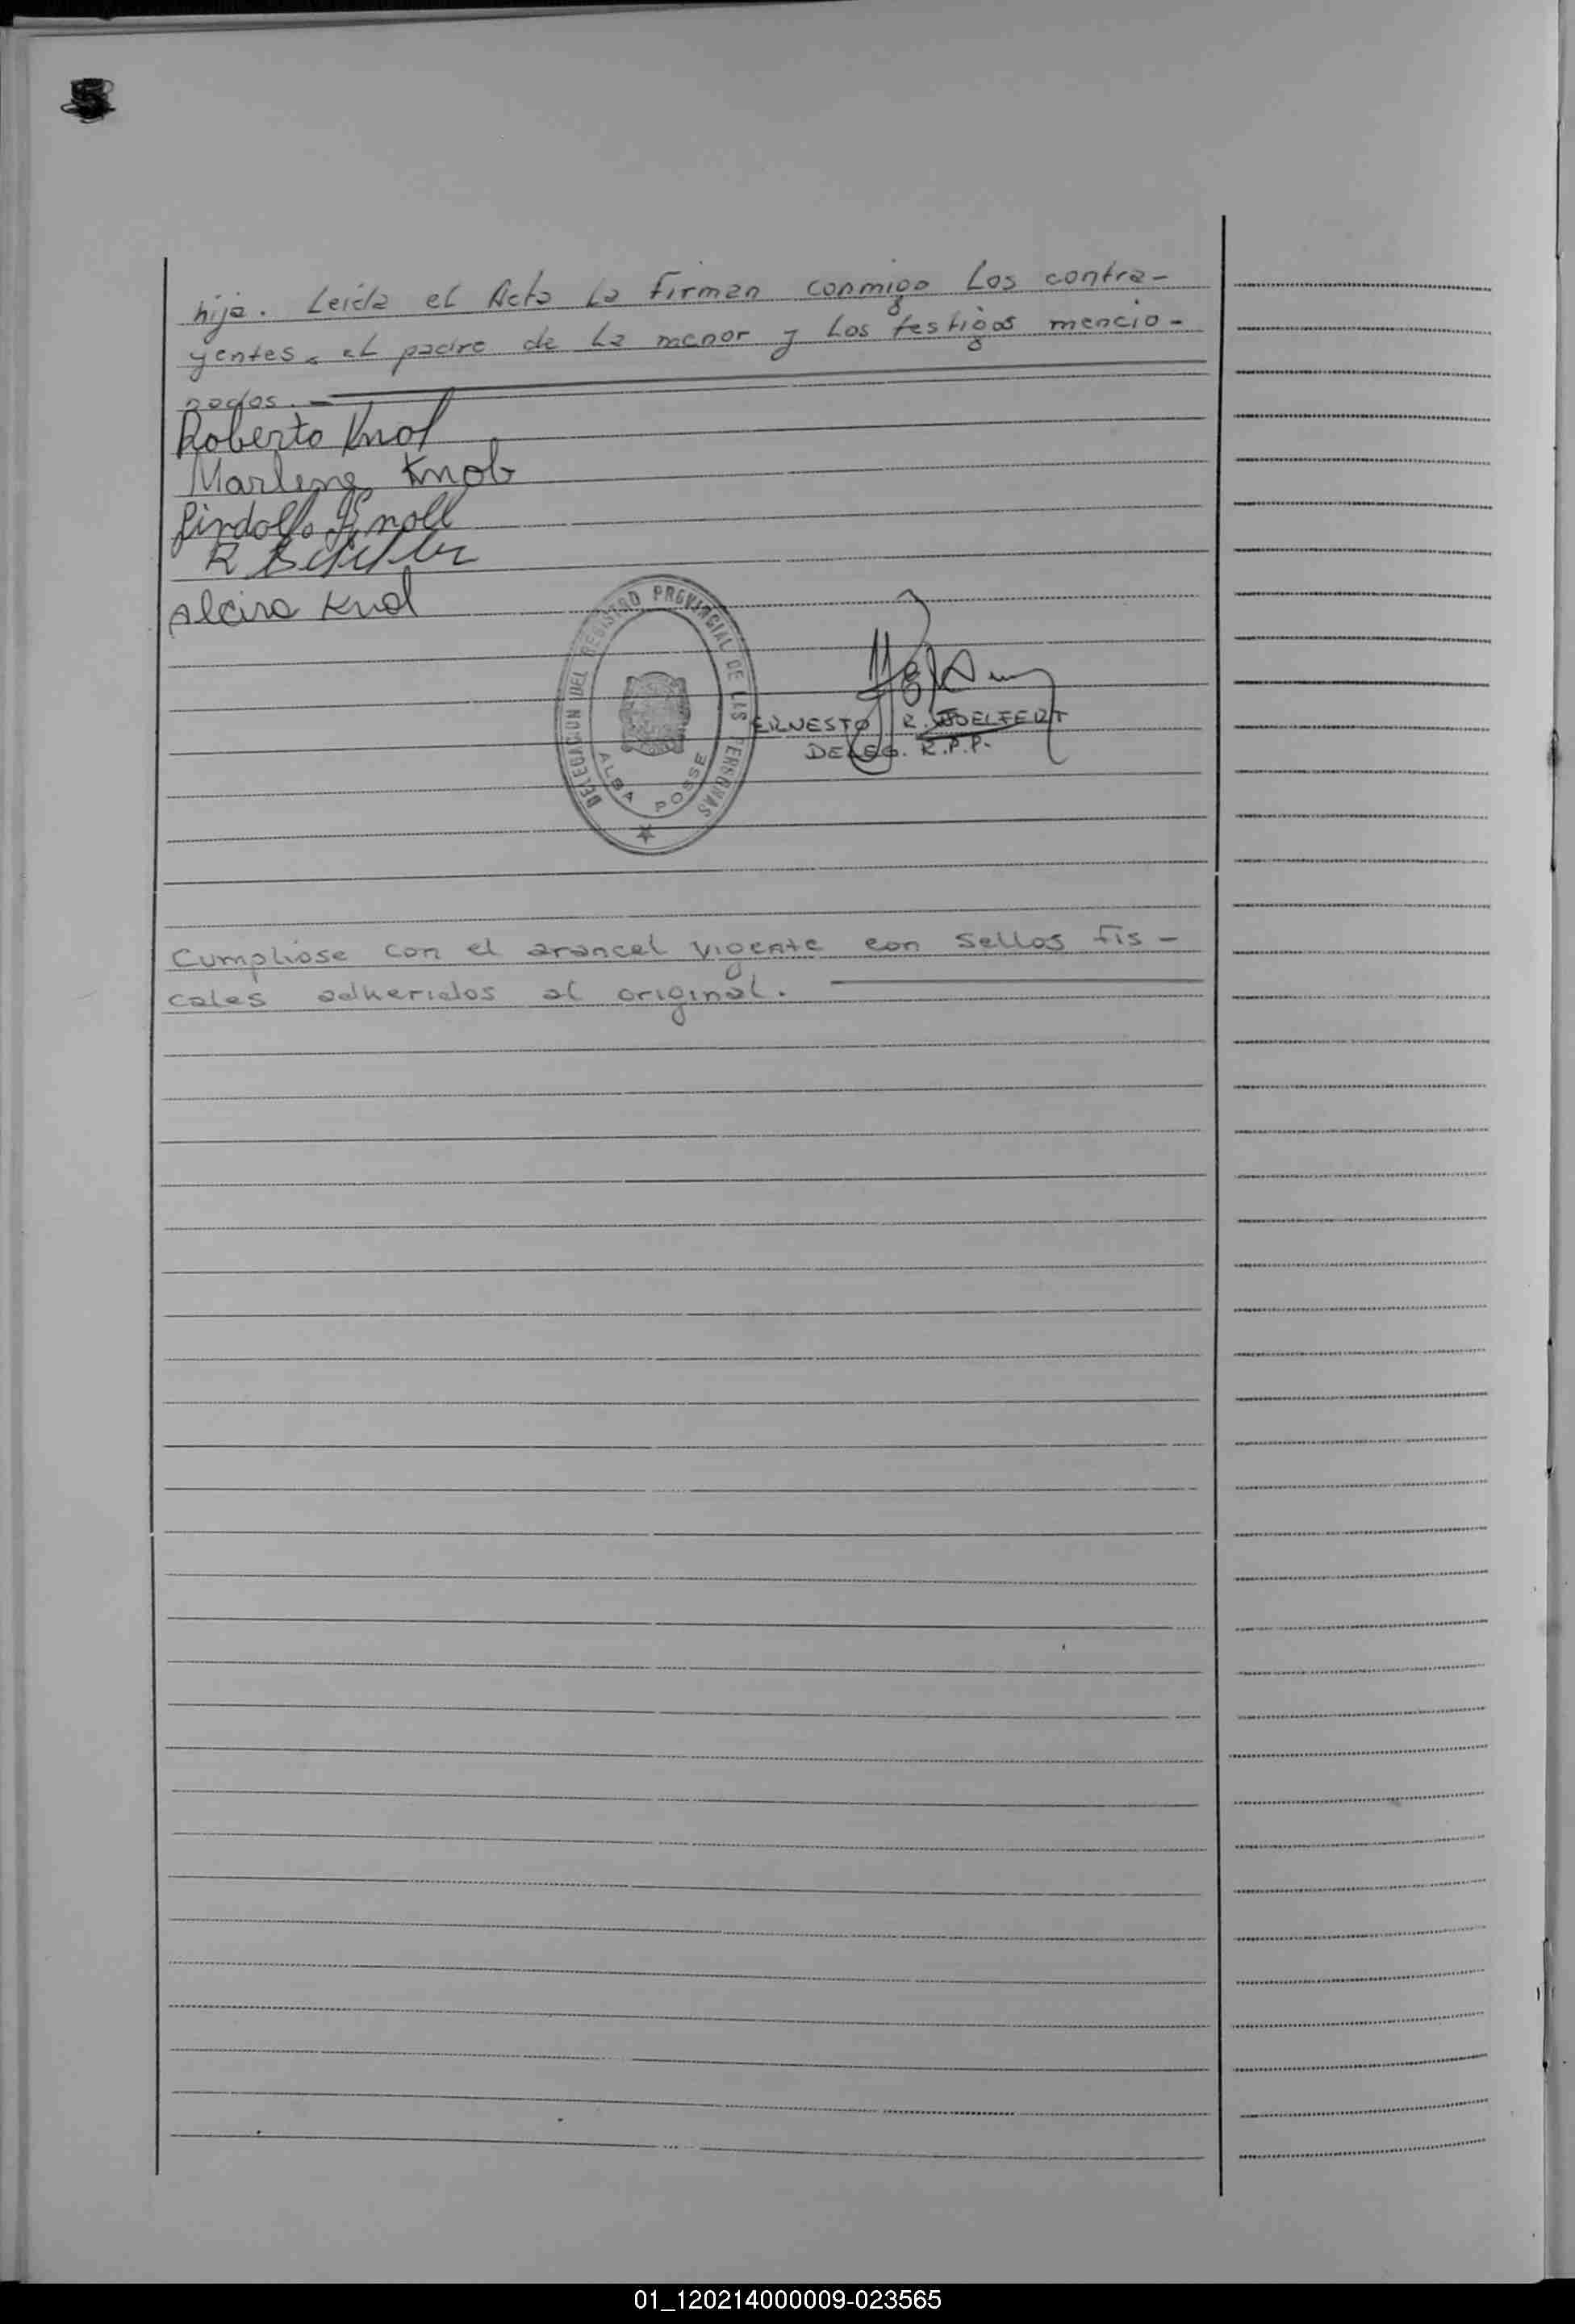 hija. Leida el Acta la firman conmigo los contra-
yentes, el padre de la menor y los testigos mencio-
nados. —
Roberto Knol
Marlene Knob
Lindolfo Knoll
R
Alcira Knol
DELEGACION DEL REGISTRO PROVINCIAL DE LAS PERSONAS
ALBA POSSE
ERNESTO R.
DELEG. R.P.P.
Cumpliose con el arancel vigente con sellos fis-
cales adheridos al original.
01_120214000009-023565